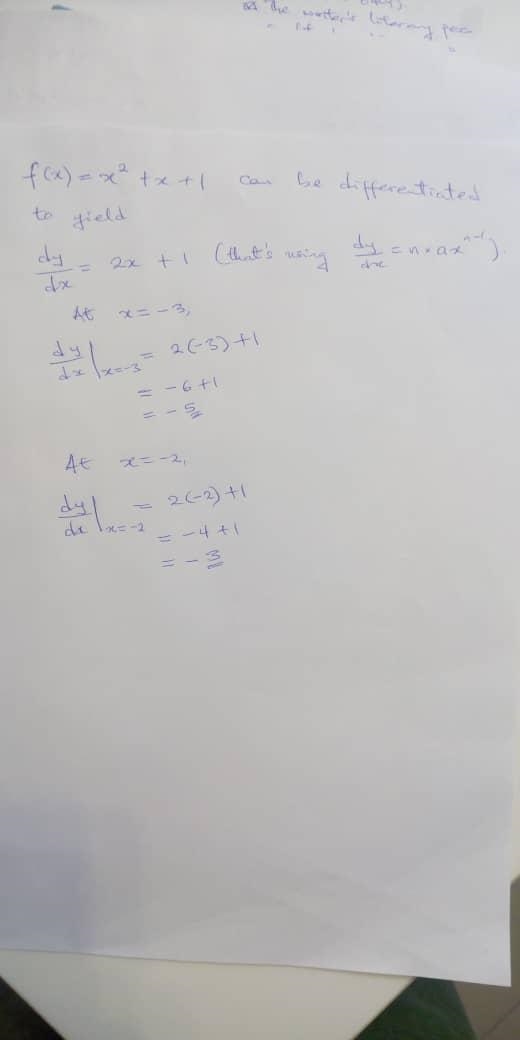 the writer's literary
f(x) = x² + x + 1 can be differentiated
to yield
dy/dx = 2x + 1 (that's using dy/dx = n × ax^(n-1)).
At x = -3,
dy/dx |x=-3 = 2(-3) + 1
= -6 + 1
= -5
At x = -2,
dy/dx |x=-2 = 2(-2) + 1
= -4 + 1
= -3